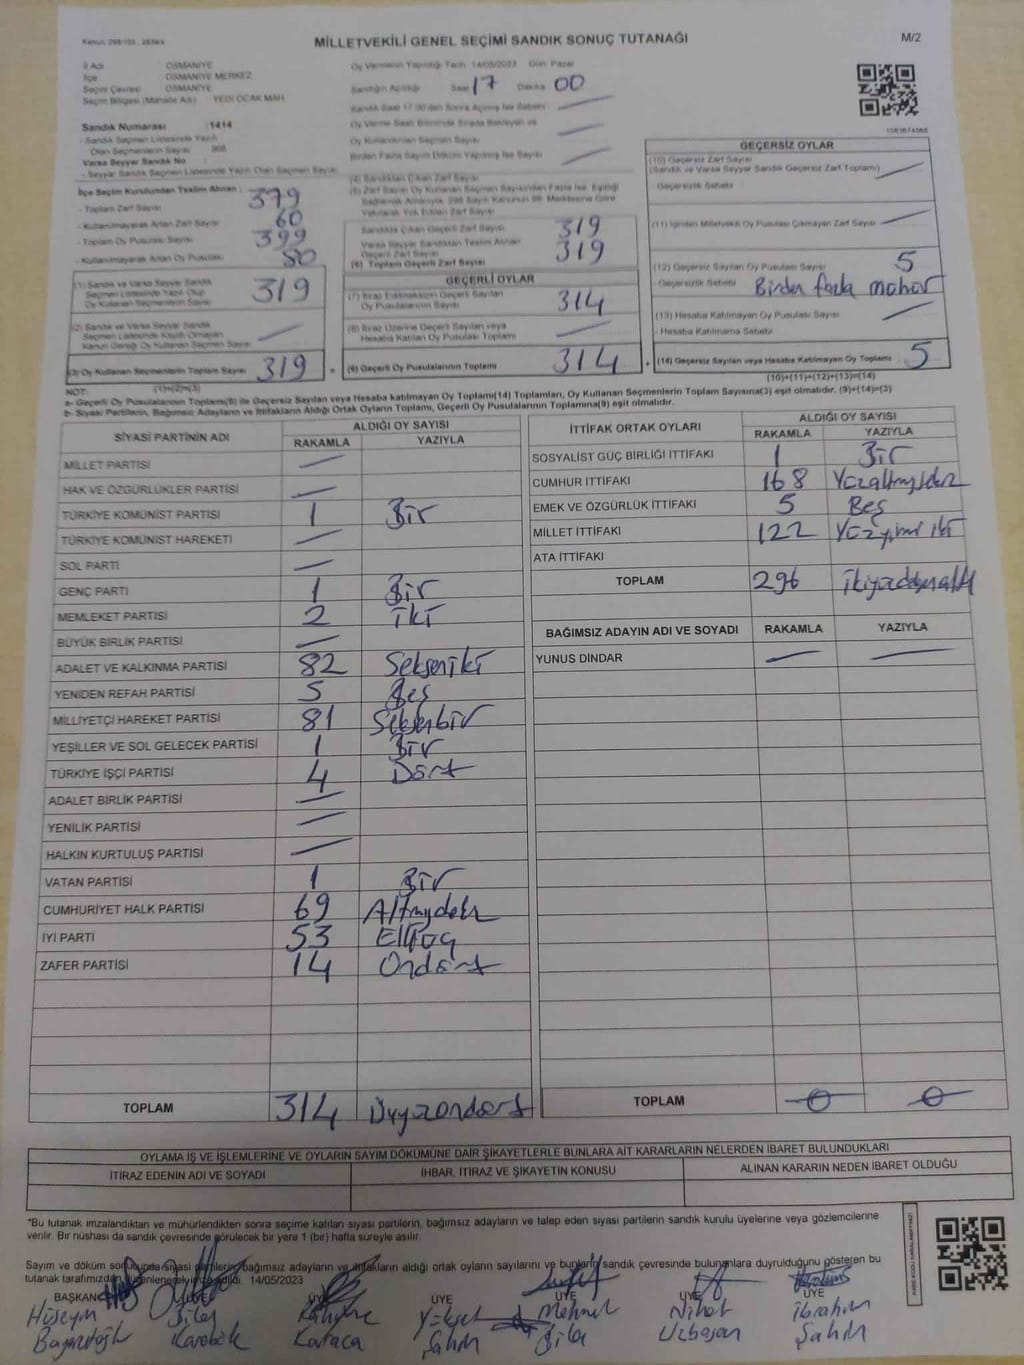 MİLLETVEKİLİ GENEL SEÇİMİ SANDIK SONUÇ TUTANAĞI
M/2
İl Adı OSMANİYE
İlçe OSMANİYE MERKEZ
Seçim Çevresi OSMANİYE
Seçim Bölgesi (Mahalle Adı) YEDİ OCAK MAH.
Sandık Numarası : 1414
Oy Vermenin Yapıldığı Tarih 14/05/2023 Gün Pazar
Sandığın Açıldığı Saat 17 Dakika 00
İlçe Seçim Kurulundan Teslim Alınan :
- Toplam Zarf Sayısı 379
- Kullanılmayarak Artan Zarf Sayısı 60
- Toplam Oy Pusulası Sayısı 399
- Kullanılmayarak Artan Oy Pusulası 80
(1) Sandık ve Varsa Seyyar Sandık
Seçmen Listesinde Yazılı Olup
Oy Kullanan Seçmenlerin Sayısı 319
(2) Sandık ve Varsa Seyyar Sandık
Seçmen Listesinde Kayıtlı Olmayan
Kanun Gereği Oy Kullanan Seçmen Sayısı
(3) Oy Kullanan Seçmenlerin Toplam Sayısı 319
(1)+(2)=(3)
Sandıkta Çıkan Geçerli Zarf Sayısı 319
Varsa Seyyar Sandıktan Teslim Alınan
Geçerli Zarf Sayısı
(6) Toplam Geçerli Zarf Sayısı 319
GEÇERLİ OYLAR
(7) İtiraz Edilmeksizin Geçerli Sayılan
Oy Pusulalarının Toplamı 314
(8) İtiraz Üzerine Geçerli Sayılan veya
Hesaba Katılan Oy Pusulası Toplamı
(9) Geçerli Oy Pusulalarının Toplamı 314
GEÇERSİZ OYLAR
(10) Geçersiz Zarf Sayısı
(Sandık ve Varsa Seyyar Sandık Geçersiz Zarf Toplamı)
Geçersizlik Sebebi
(11) İçinden Milletvekili Oy Pusulası Çıkmayan Zarf Sayısı
(12) Geçersiz Sayılan Oy Pusulası Sayısı 5
- Geçersizlik Sebebi Birden fazla mühür
(13) Hesaba Katılmayan Oy Pusulası Sayısı
- Hesaba Katılmama Sebebi
(14) Geçersiz Sayılan veya Hesaba Katılmayan Oy Toplamı 5
(10)+(11)+(12)+(13)=(14)
NOT:
a- Geçerli Oy Pusulalarının Toplamı(9) ile Geçersiz Sayılan veya Hesaba katılmayan Oy Toplamı(14) Toplamları, Oy Kullanan Seçmenlerin Toplam Sayısına(3) eşit olmalıdır. (9)+(14)=(3)
b- Siyasi Partilerin, Bağımsız Adayların ve İttifakların Aldığı Ortak Oyların Toplamı, Geçerli Oy Pusulalarının Toplamına(9) eşit olmalıdır.
SİYASİ PARTİNİN ADI ALDIĞI OY SAYISI
RAKAMLA YAZIYLA
MİLLET PARTİSİ
HAK VE ÖZGÜRLÜKLER PARTİSİ
TÜRKİYE KOMÜNİST PARTİSİ 1 Bir
TÜRKİYE KOMÜNİST HAREKETİ
SOL PARTİ
GENÇ PARTİ 1 Bir
MEMLEKET PARTİSİ 2 İki
BÜYÜK BİRLİK PARTİSİ
ADALET VE KALKINMA PARTİSİ 82 Seksen iki
YENİDEN REFAH PARTİSİ 5 Beş
MİLLİYETÇİ HAREKET PARTİSİ 81 Seksenbir
YEŞİLLER VE SOL GELECEK PARTİSİ 1 Bir
TÜRKİYE İŞÇİ PARTİSİ 4 Dört
ADALET BİRLİK PARTİSİ
YENİLİK PARTİSİ
HALKIN KURTULUŞ PARTİSİ
VATAN PARTİSİ 1 Bir
CUMHURİYET HALK PARTİSİ 69 Altmışdokuz
İYİ PARTİ 53 Elliüç
ZAFER PARTİSİ 14 Ondört
TOPLAM 314 Üçyüzondört
İTTİFAK ORTAK OYLARI ALDIĞI OY SAYISI
RAKAMLA YAZIYLA
SOSYALİST GÜÇ BİRLİĞİ İTTİFAKI 1 Bir
CUMHUR İTTİFAKI 168 Yüzaltmışsekiz
EMEK VE ÖZGÜRLÜK İTTİFAKI 5 Beş
MİLLET İTTİFAKI 122 Yüzyirmi iki
ATA İTTİFAKI
TOPLAM 296 İkiyüzdoksanaltı
BAĞIMSIZ ADAYIN ADI VE SOYADI RAKAMLA YAZIYLA
YUNUS DİNDAR
TOPLAM 0 0
OYLAMA İŞ VE İŞLEMLERİNE VE OYLARIN SAYIM DÖKÜMÜNE DAİR ŞİKAYETLERLE BUNLARA AİT KARARLARIN NELERDEN İBARET BULUNDUKLARI
İTİRAZ EDENİN ADI VE SOYADI İHBAR, İTİRAZ VE ŞİKAYETİN KONUSU ALINAN KARARIN NEDEN İBARET OLDUĞU
*Bu tutanak imzalandıktan ve mühürlendikten sonra seçime katılan siyasi partilerin, bağımsız adayların ve talep eden siyasi partilerin sandık kurulu üyelerine veya gözlemcilerine
verilir. Bir nüshası da sandık çevresinde görülecek bir yere 1 (bir) hafta süreyle asılır.
Sayım ve döküm sonucunda siyasi partilerin, bağımsız adayların ve ittifakların aldığı ortak oyların sayılarını ve bunların sandık çevresinde bulunanlara duyrulduğunu gösteren bu
tutanak tarafımızdan düzenlenerek imza edildi. 14/05/2023
BAŞKAN ÜYE ÜYE ÜYE ÜYE ÜYE
Hüseyin Yüksel Mehmet Nihat İbrahim
Karaca Şahin Şahin